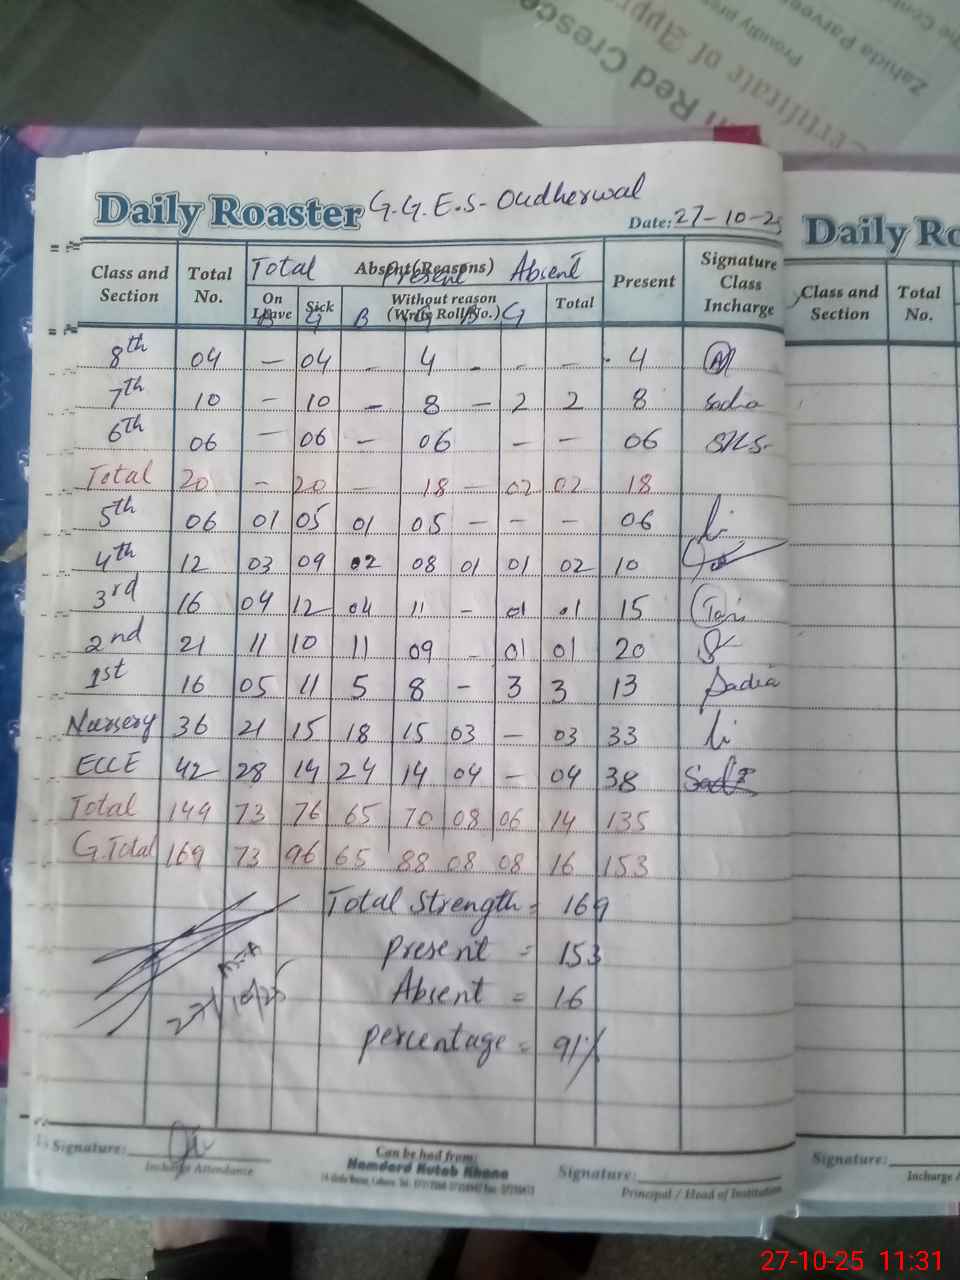 Zahida Parvee
Proudly pre
Certificate of Appr
Red Cresce
Daily Roaster G.G.E.S- Oudherwal
Date: 27-10-25
Class and Section Total No. Total Absent (Reasons) Present Absent Present Signature Class Incharge
On Leave Sick Without reason (Write Roll No.) Total
B G B G B G
8th 04 – 04 – 4 – – – 4
7th 10 – 10 – 8 – 2 2 8 Sadia
6th 06 – 06 – 06 – – 06
Total 20 – 20 – 18 – 02 02 18
5th 06 01 05 01 05 – – – 06
4th 12 03 09 02 08 01 01 02 10
3rd 16 04 12 04 11 – 01 01 15
2nd 21 11 10 11 09 – 01 01 20
1st 16 05 11 5 8 – 3 3 13 Sadia
Nursery 36 21 15 18 15 03 – 03 33
ECCE 42 28 14 24 14 04 – 04 38
Total 149 73 76 65 70 08 06 14 135
G.Total 169 73 96 65 88 08 08 16 153
Total Strength = 169
Present = 153
Absent = 16
percentage = 91%
27/10/25
Signature:
Incharge Attendance
Can be had from:
Hamdard Kutab Khana
Signature:
Principal / Head of Institution
Daily Ro
Class and Section Total No.
Signature:
Incharge A
27-10-25 11:31